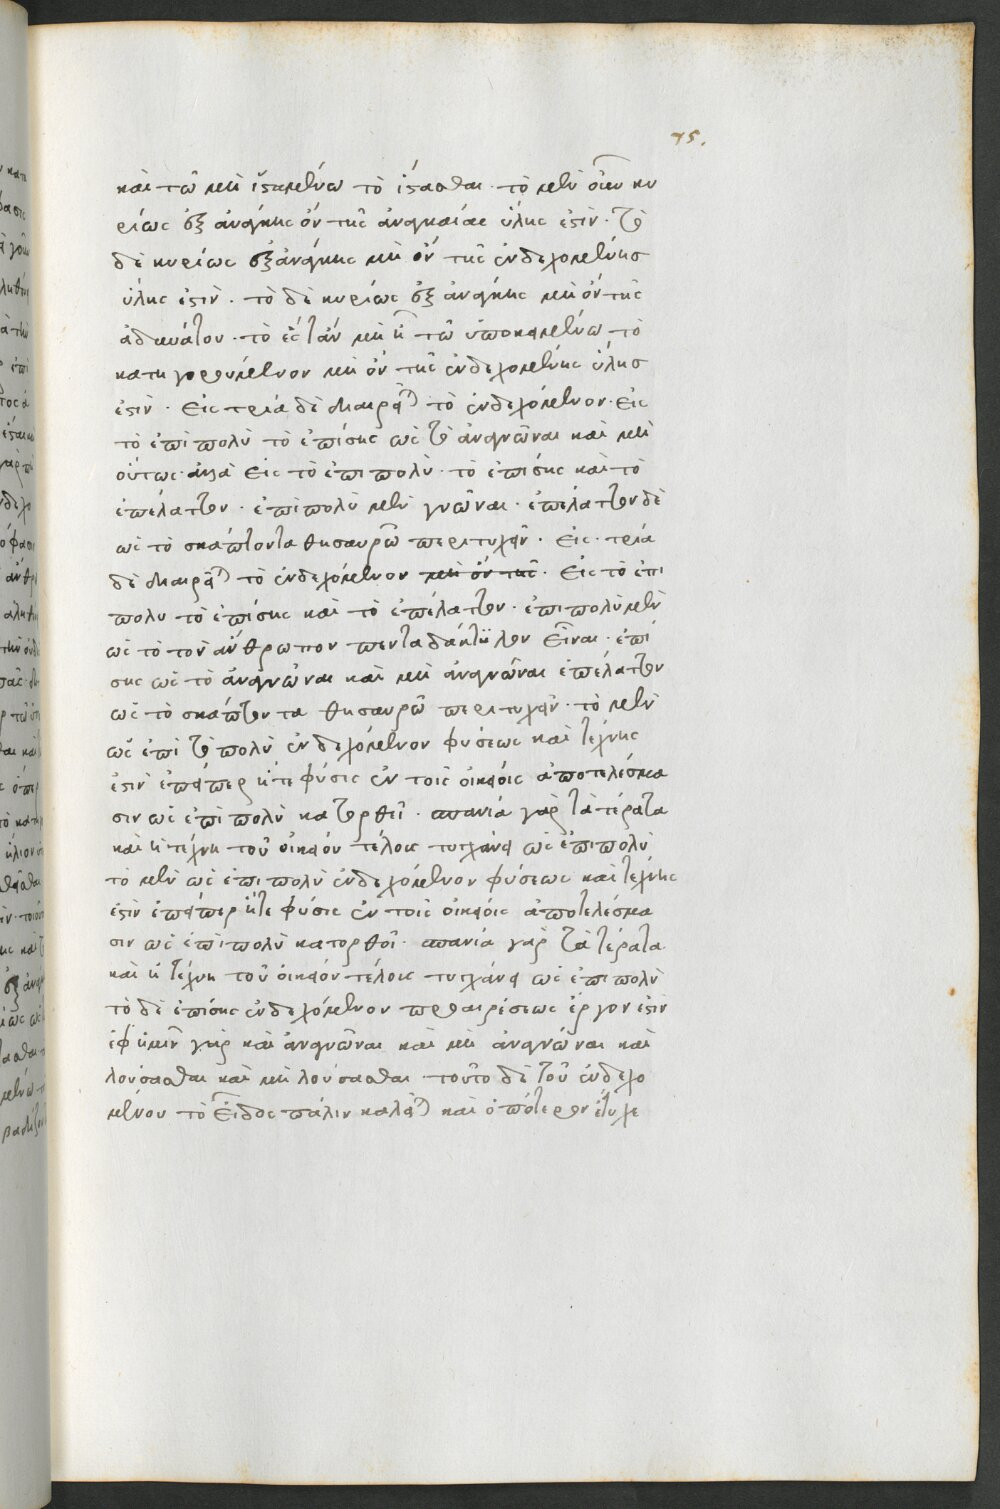 75.
καὶ τῶ μὴ ἱσταμένω τὸ ἵστασθαι· τὸ μὲν οὖν κυ
ρίως ἐξ ἀνάγκης ὂν τῆς ἀναγκαίας ὕλης ἐστίν· τὸ
δὲ κυρίως ἐξ ἀνάγκης μὴ ὂν τῆς ἐνδεχομένης
ὕλης ἐστίν· τὸ δὲ κυρίως ἐξ ἀνάγκης μὴ ὂν τῆς
ἀδυνάτου· τὸ ἔστ' ἂν μὴ ἦ τῶ ὑποκειμένω τὸ
κατηγορούμενον μὴ ὂν τῆς ἐνδεχομένης ὕλης
ἐστίν· Εἰς τρία δὲ διαιρεῖται τὸ ἐνδεχόμενον· εἰς
τὸ ἐπὶ πολὺ τὸ ἐπίσης ὡς τὸ ἀναγνῶναι καὶ μὴ
οὕτως· ἀλλὰ εἰς τὸ ἐπι πολὺ· τὸ ἐπίσης καὶ τὸ
ἐπέλαττον· ἐπὶ πολὺ μὲν γνῶναι· ἐπέλαττον δὲ
ὡς τὸ σκάπτοντα θησαυρῶ περιτυχεῖν· Εἰς τρία
δὲ διαιρεῖται τὸ ἐνδεχόμενον μὴ ὂν τῆς· Εἰς τὸ ἐπι
πολυ τὸ ἐπίσης καὶ τὸ ἐπέλαττον· ἐπι πολὺ μὲν
ὡς τὸ τὸν ἄνθρωπον πενταδάκτυλον εἶναι· ἐπί
σης ὡς τὸ ἀναγνῶναι καὶ μὴ ἀναγνῶναι ἐπέλαττον
ὡς τὸ σκάπτοντα θησαυρῶ περιτυχεῖν· τὸ μὲν
ὡς ἐπὶ τὸ πολὺ ἐνδεχόμενον φύσεως καὶ τέχνης
ἐστὶν ἐπείπερ ἥτε φύσις ἐν τοῖς οἰκείοις ἀποτελέσμα
σιν ὡς ἐπὶ πολὺ κατορθοῖ· σπανία γὰρ τὰ τέρατα
καὶ ἡ τέχνη τοῦ οἰκείου τέλους τυγχάνει ὡς ἐπὶ πολὺ
τὸ μὲν ὡς ἐπι πολὺ ἐνδεχόμενον φύσεως καὶ τέχνης
ἐστὶν ἐπείπερ ἥτε φύσις ἐν τοῖς οἰκείοις ἀποτελέσμα
σιν ὡς ἐπὶ πολὺ κατορθοῖ· σπανία γὰρ τὰ τέρατα
καὶ ἡ τέχνη τοῦ οἰκείου τέλους τυγχάνει ὡς ἐπι πολὺ
τὸ δὲ ἐπίσης ἐνδεχόμενον προαιρέσεως ἔργον ἐστὶν
ἐφ' ἡμῖν γὰρ καὶ ἀναγνῶναι καὶ μὴ ἀναγνῶναι καὶ
λούσασθαι καὶ μὴ λούσασθαι· τοῦτο δὲ τοῦ ἐνδεχο
μένου τὸ εἶδος πάλιν καλεῖται καὶ ὁπότερον ἔτυχε